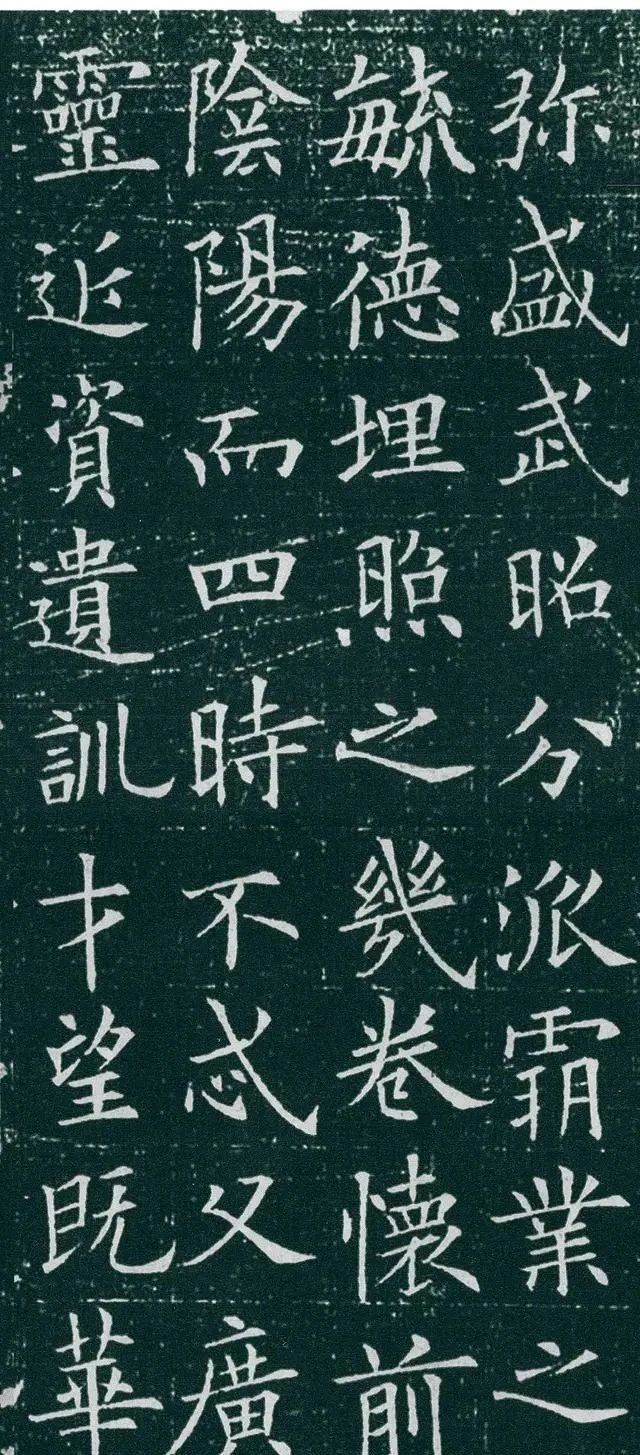 弥盛武昭分派霸業之
毓德埋照之幾卷懷前
陰陽而四時不忒父廣
靈近資遺訓才望既華